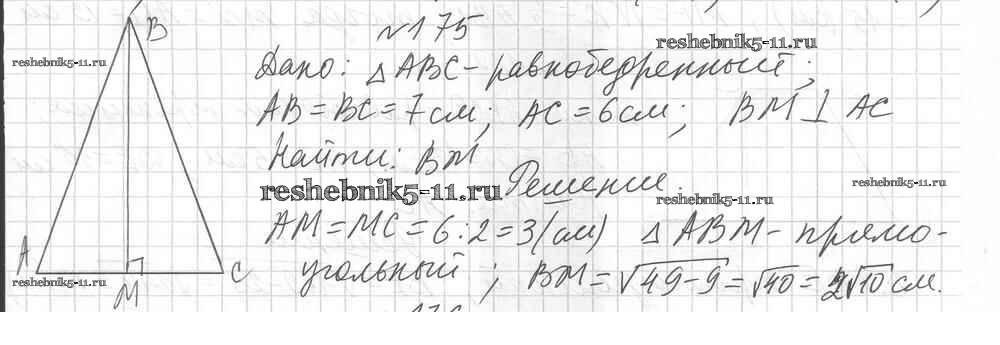 №175
B
reshebnik5-11.ru
reshebnik5-11.ru
Дано: △ ABC - равнобедренный;
AB = BC = 7 см; AC = 6 см; BM ⊥ AC
Найти: BM
reshebnik5-11.ru
Решение.
reshebnik5-11.ru
reshebnik5-11.ru
AM = MC = 6 : 2 = 3 (см) △ ABM - прямо-
A
C
угольный; BM = √49-9 = √40 = 2√10 см.
reshebnik5-11.ru
M